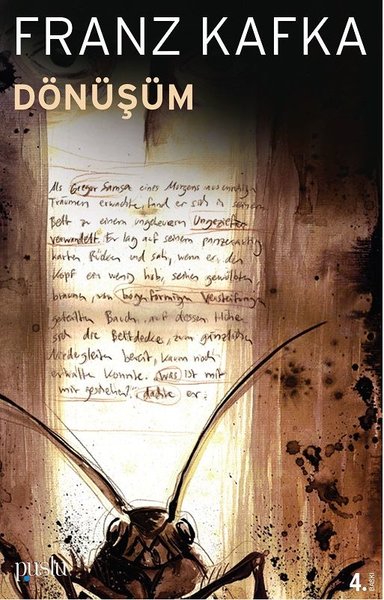 FRANZ KAFKA
DÖNÜŞÜM
Als Gregor Samsa eines Morgens aus unruhigen
Träumen erwachte, fand er sich in seinem
Bett zu einem ungeheueren Ungeziefer
verwandelt. Er lag auf seinem panzerartig
harten Rücken und sah, wenn er den
Kopf ein wenig hob, seinen gewölbten
braunen, von bogenförmigen Versteifungen
geteilten Bauch, auf dessen Höhe
sich die Bettdecke, zum gänzlichen
Niedergleiten bereit, kaum noch
erhalten konnte. Was ist mit
mir geschehen? dachte er.
puslu
4.
BASKI